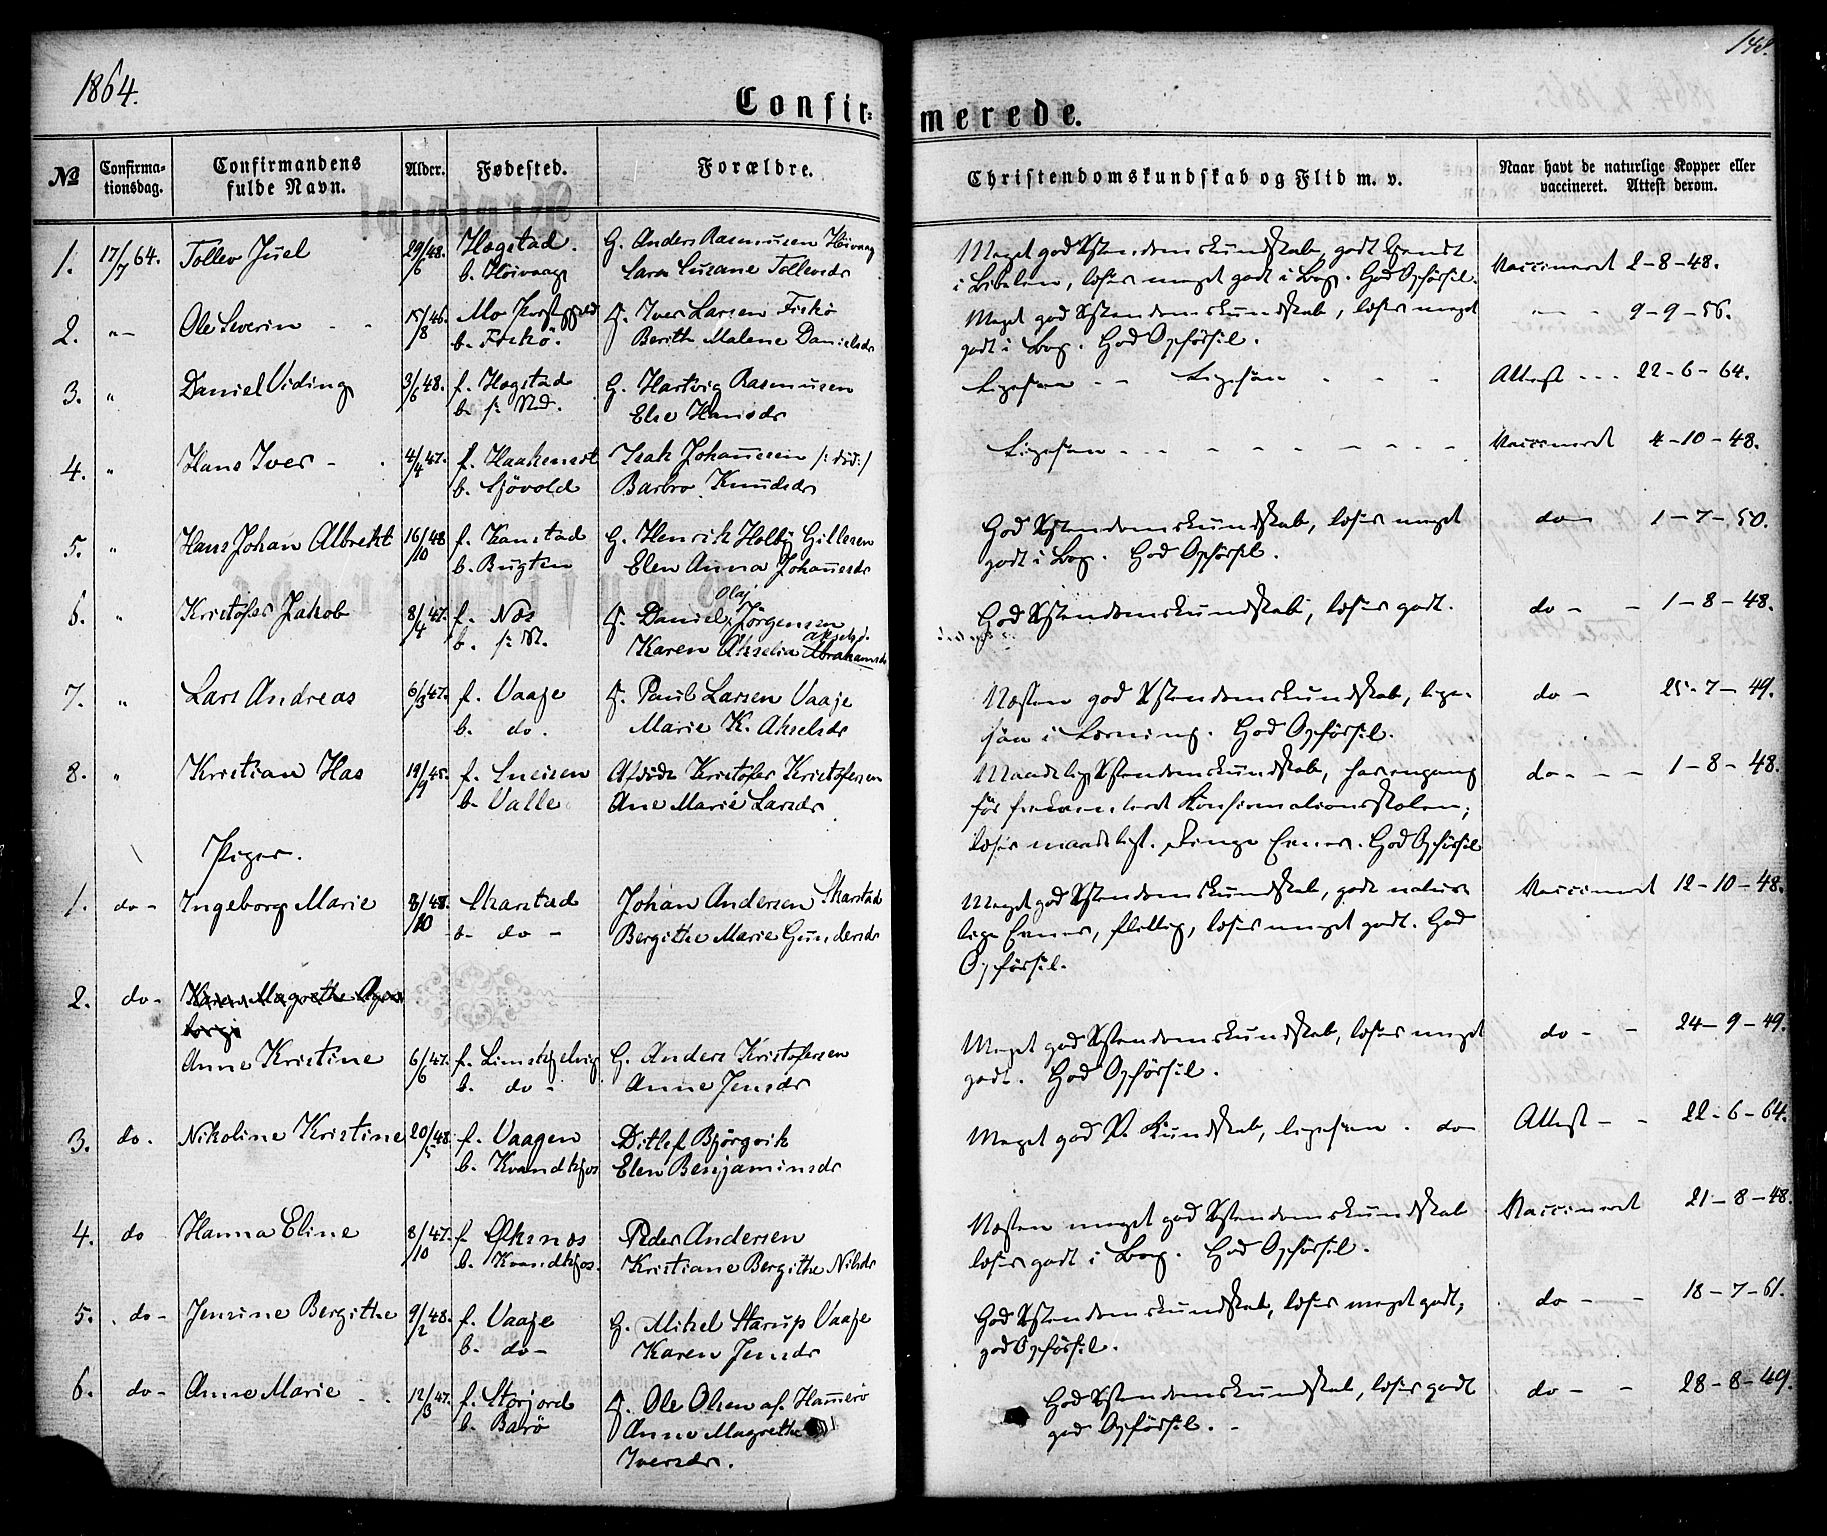 1864.
148.
Confir-
merede.
№
Confirma-
tionsdag.
Confirmandens
fulde Navn.
Alder.
Fødested.
Forældre.
Christendomskundskab og Flid m. v.
Naar havt de naturlige Kopper eller
vaccineret. Attest derom.
1. 17/7 64. Tollev Juel 29/6 48. Hogstad. G. Anders Rasmussen Höivaag
b. Höivaag Sara Susane Tollevsdr
Meget god Xstendomskundskab, godt kendt
i Bibelen, læser meget godt i Bog. God Opförsel.
Vaccineret 2-8-48.
2. " Ole Severin 15/8 46. Mo Præstegjeld F. Iver Larsen Fiskö
b. Fiskö. Berith Malene Danielsdr
Meget god Xstendomskundskab, læser meget
godt i Bog. God Opförsel.
" 9-9-56.
3. " Daniel Viding 3/6 48. f. Hogstad G. Hartvig Rasmussen
b. Else Hansdr
Ligesaa - - Ligesaa - - -
Attest - - - 22-6-64.
4. " Hans Iver 4/4 47. f. Isak Johanssen /: död :/
b. Sjövold Barbro Knudsdr
Ligesaa - - - - - - - -
Vaccineret 4-10-48.
5. " Hans Johan Albrekt 16/10 48 f. Kanstad G. Henrik Holby Gillesen
b. Bugten Elen Anna Johannesdr
God Xstendomskundskab, læser meget
godt i Bog. God Opförsel.
do 1-7-50.
Olaj
6. " Kristofer Jakob 8/4 47. f. Nes F. Daniel Jörgensen
Akselsd.
b. Karen Akselia Abrahamsdr
God Xstendomskundskab, læser godt.
do - - 1-8-48.
7. " Lars Andreas 6/3 47. f. Vaaje F. Paul Larsen Vaaje
b. do. Marie K. Akselsdr
Næsten god Xstendomskundskab, lige-
saa i Læsning. God Opförsel.
do - 25-7-49.
8. " Kristian Has 19/9 45. f. Afdöde Kristofer Kristofersen
b. Valle Ane Marie Larsdr
Maadelig Xstendomskundskab, har engang
för frekventeret Konfirmationsskolen;
læser maadeligt. Ringe Evner. God Opförsel
do - - - 1-8-48.
Piger.
1. do - Ingeborg Marie 8/10 48. Skarstad Johan Andersen Skarstad
b. do - Bergithe Marie Gundersdr
Meget god Xstendomskundskab, gode natur-
lige Evner, flittig, læser meget godt. God
Opförsel.
Vaccineret 12-10-48.
2. do - Karen Magrethe
Anne Kristine 6/6 47. f. G. Anders Kristofersen
b. do - Anne Jensdr
Meget god Xstendomskundskab, læser meget
godt. God Opförsel.
do - - 24-9-49.
3. do - Nikoline Kristine 20/5 48. f. Vaagen Ditlef Björgvik
b. Kvandkjos Elen Benjaminsdr
Meget god X. Kundskab, ligesaa - do
Attest - - 22-6-64.
4. do Hanna Eline 8/10 47. f. Aknes Peder Andersen
b. Kvandkjos. Kristiane Bergithe Nilsdr
Næsten meget god Xstendomskundskab
læser godt i Bog. God Opförsel.
Vaccineret 21-8-48.
5. do - Jensine Bergithe 9/2 48. f. Vaaje G. Mikel Starup Vaaje
b. do - Karen Jensdr
God Xstendomskundskab, læser meget godt,
god Opförsel.
do - - 18-7-61.
6. do - Anne Marie 12/3 47. f. Storjord F. Ole Olsen af Hamerö
b. Barö Anne Magrethe
Iversdr.
God Xstendomskundskab, læser godt
god Opförsel. -
do - - 28-8-49.